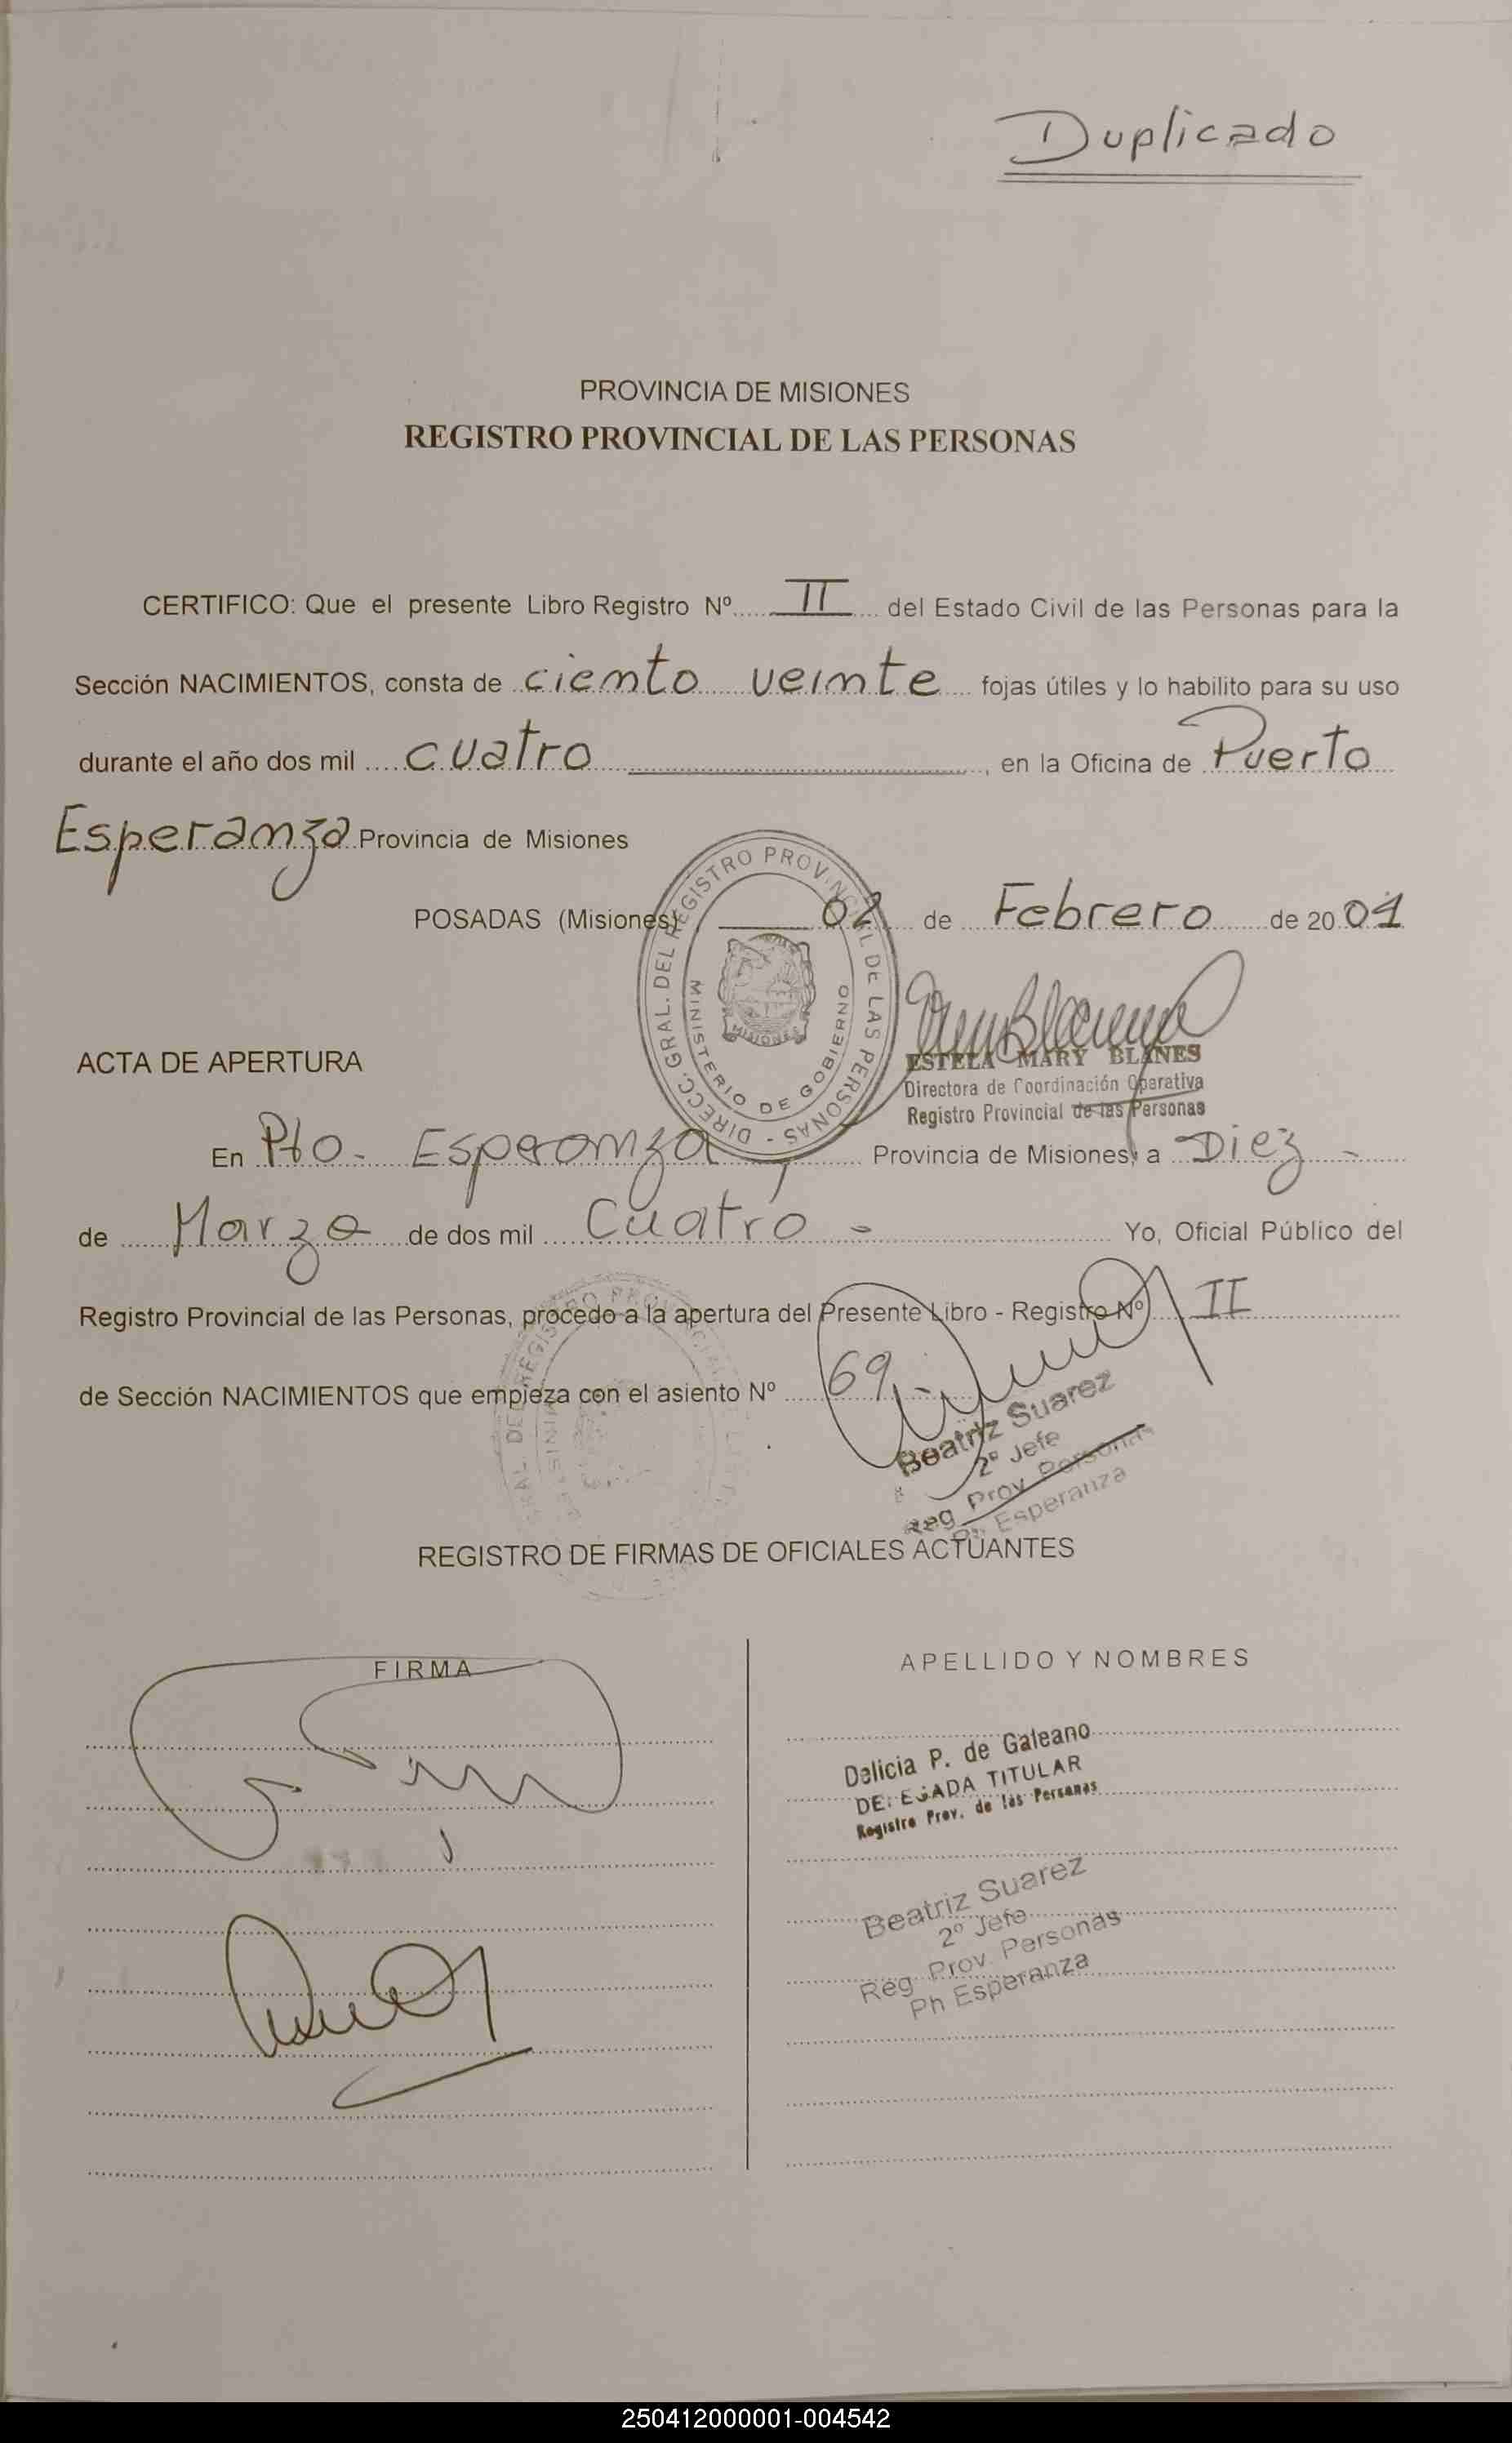 Duplicado
PROVINCIA DE MISIONES
REGISTRO PROVINCIAL DE LAS PERSONAS
CERTIFICO: Que el presente Libro Registro Nº II del Estado Civil de las Personas para la
Sección NACIMIENTOS, consta de ciento veinte fojas útiles y lo habilito para su uso
durante el año dos mil cuatro, en la Oficina de Puerto
Esperanza Provincia de Misiones
POSADAS (Misiones) 02 de Febrero de 2004
DIRECC. GRAL. DEL REGISTRO PROVINCIAL DE LAS PERSONAS -
MINISTERIO DE GOBIERNO
MISIONES
ESTELA MARY BLANES
Directora de Coordinación Operativa
Registro Provincial de las Personas
ACTA DE APERTURA
En Pto. Esperanza, Provincia de Misiones, a Diez -
de Marzo de dos mil Cuatro - Yo, Oficial Público del
Registro Provincial de las Personas, procedo a la apertura del Presente Libro - Registro Nº II
de Sección NACIMIENTOS que empieza con el asiento Nº 69.-
Beatriz Suarez
2º Jefe
Reg Prov Personas
Esperanza
REGISTRO DE FIRMAS DE OFICIALES ACTUANTES
FIRMA
APELLIDO Y NOMBRES
Delicia P. de Galeano
DELEGADA TITULAR
Registro Prov. de las Personas
Beatriz Suarez
2º Jefe
Reg Prov. Personas
Ph Esperanza
250412000001-004542